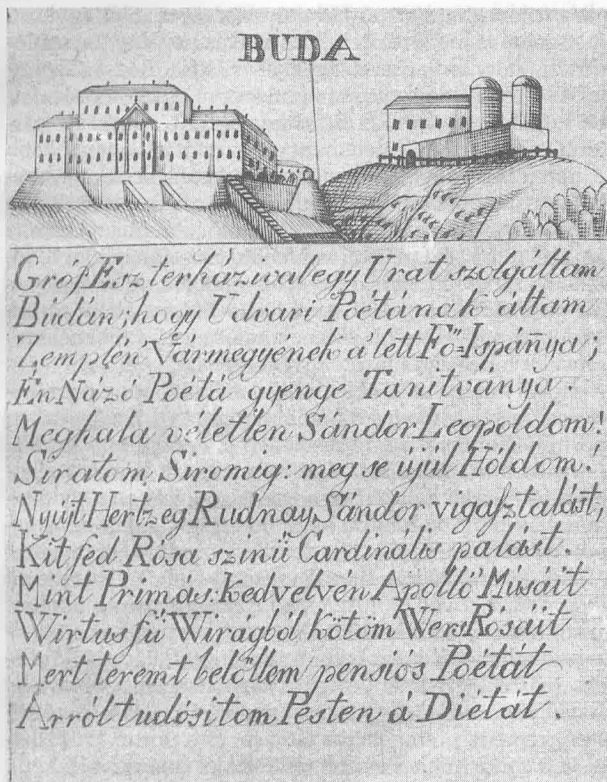 BUDA
Gróf Eszterházival egy Urat szolgáltam
Búdán; hogy Udvari Poétának áltam
Zemplén Vármegyének á lett Fő-Ispánnya;
Én Názó Poétá gyenge Tanitványa.
Meghala véletlen Sándor Leopoldom!
Siratom Siromig: meg se újúl Hóldom!
Nyújt Hertzeg Rudnay Sándor vigasztalást,
Kit fed Rósa szinű Cardinális palást.
Mint Primás: kedvelvén Apolló Músáit
Wirtus fű Wirágból kötöm Wers Rósáit
Mert teremt belőllem pensiós Poétát
Arról tudósitom Pesten á Diétát.